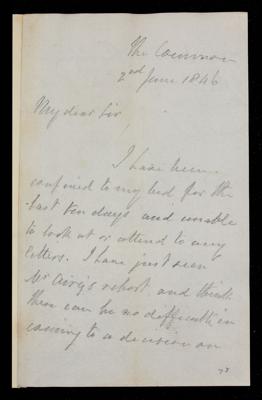 The Common
2nd June 1846
My dear Sir
I have been
confined to my bed for the
last ten days and unable
to look at or attend to any
letters. I have just seen
Mr Airy's report and think
there can be no difficulty in
coming to a decision on